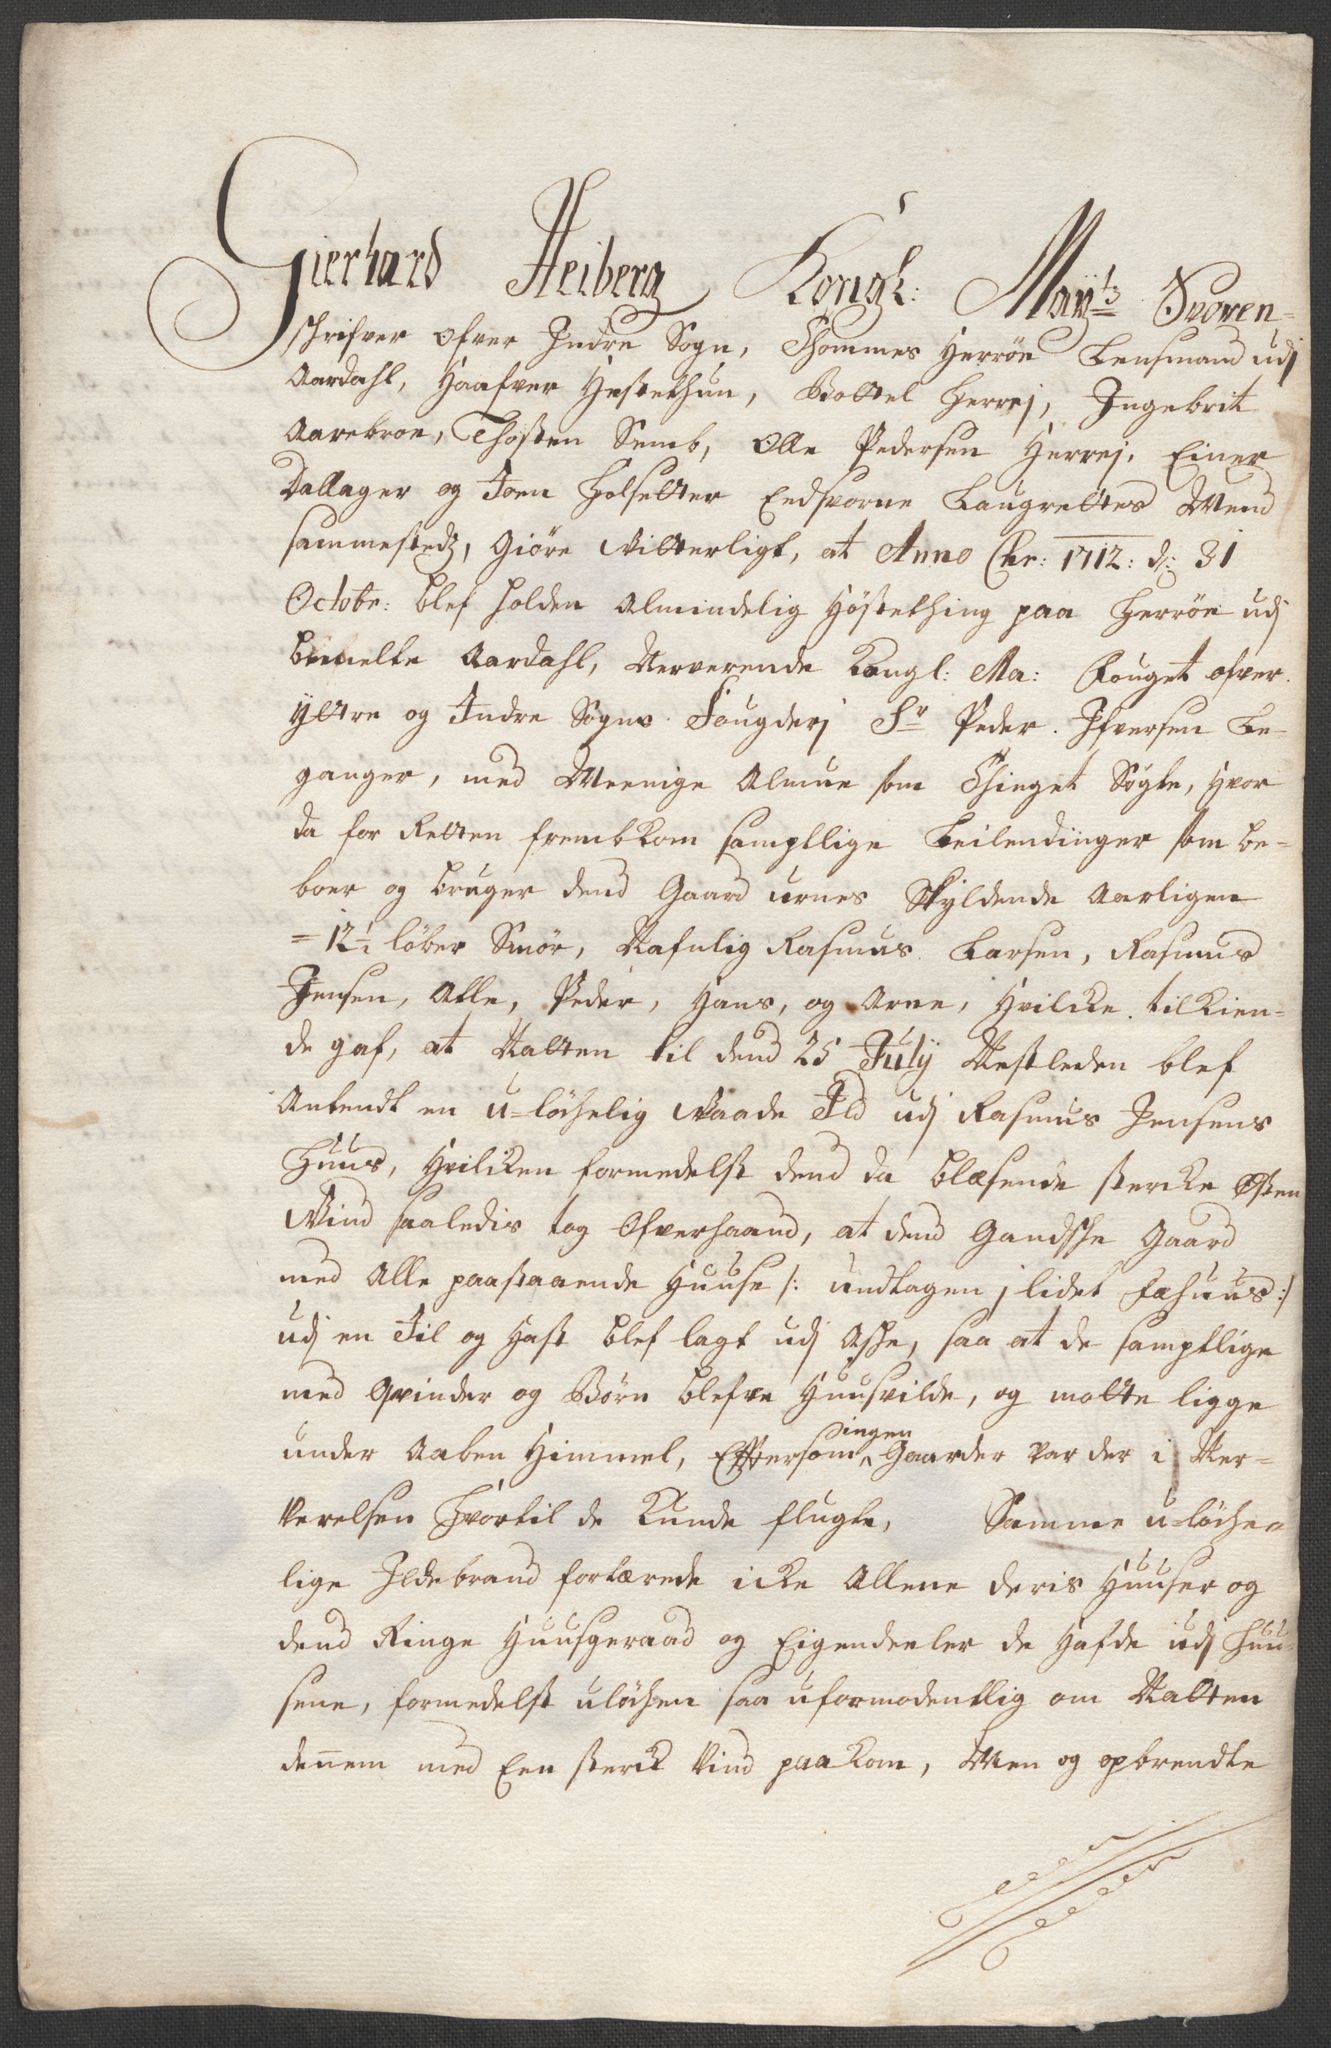 Gierhard Heiberg Kongl: May:ts Svoren-
schrifver ofver Indre Sogn, Thommes Herrøe Lensmand udj
Aardahl, Haafver Hestethun, Bottel Herrej, Ingebrit
Aarebroe, Thosten Semb, Olle Pedersen Herrej, Einer
Dallager og Joen Holsetter Eedsvorne Laugrettes Mend
sammestedz, Giøre Witterligt, at Anno Chr: 1712: d: 31
Octobr: blef holden Almindelig Høstething paa Herrøe udj
bemelte Aardahl, Nerverende Kongl: Ma: Fouget ofver
ÿttre og Indre Sogns Fougderj Sr Peder Ifversen Le-
ganger, med Meenige Almue som Thinget Søgte, hvor
da for Retten frembkom samptlige Leilendinger som be-
boer og bruger dend Gaard urnes Skyldende Aarligen
=12½ løber Smør, Nafnlig Rasmus Larsen, Rasmus
Jensen, Olle, Peder, Hans, og Arne, hvilcke tilkien-
de gaf, at Natten til dend 25 Julÿ Nestleden blef
Antendt en u-løchelig Waade Ild udj Rasmus Jensens
Huus, hvilcken formedelst dend da blæsende stercke Østen
Wind saaledis tog Ofverhaand, at dend Gandsche Gaard
med Alle paastaaende Huuse /: undtagen j lidet Fæhuus :/
udj en Jil og Hast blef lagt udj Asche, saa at de samptlige
med Qvinder og Børn blefve Huusvilde, og motte ligge
under Aaben Himmel, Effttersom ingen Gaarder var der i Ner-
verelsen hvortil de kunde flugte, Samme u-løche-
lige Ildebrand fortærede icke Allene deris Huuser og
dend Ringe Huusgeraad og Eigendeeler de hafde udj Huu-
sene, formedelst uløchen saa uformodentlig om Natten
dennem med Een sterck Vind paakom, Men og opbrendte